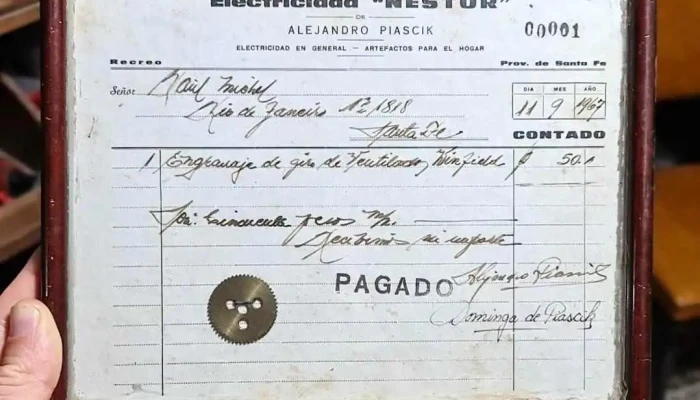 Electricidad "NESTOR"
DE
ALEJANDRO PIASCIK
00001
ELECTRICIDAD EN GENERAL — ARTEFACTOS PARA EL HOGAR
Recreo
Prov. de Santa Fe
Señor Raúl Michel
Rio de Janeiro Nº 1818
Santa Fe
DIA MES AÑO
11 9 1967
CONTADO
1 Engranaje de giro de Ventilador Winfield $ 50.-
Son: Cincuenta pesos m/n.
Recibimos su importe
PAGADO
Alejandro Piascik
Dominga de Piascik